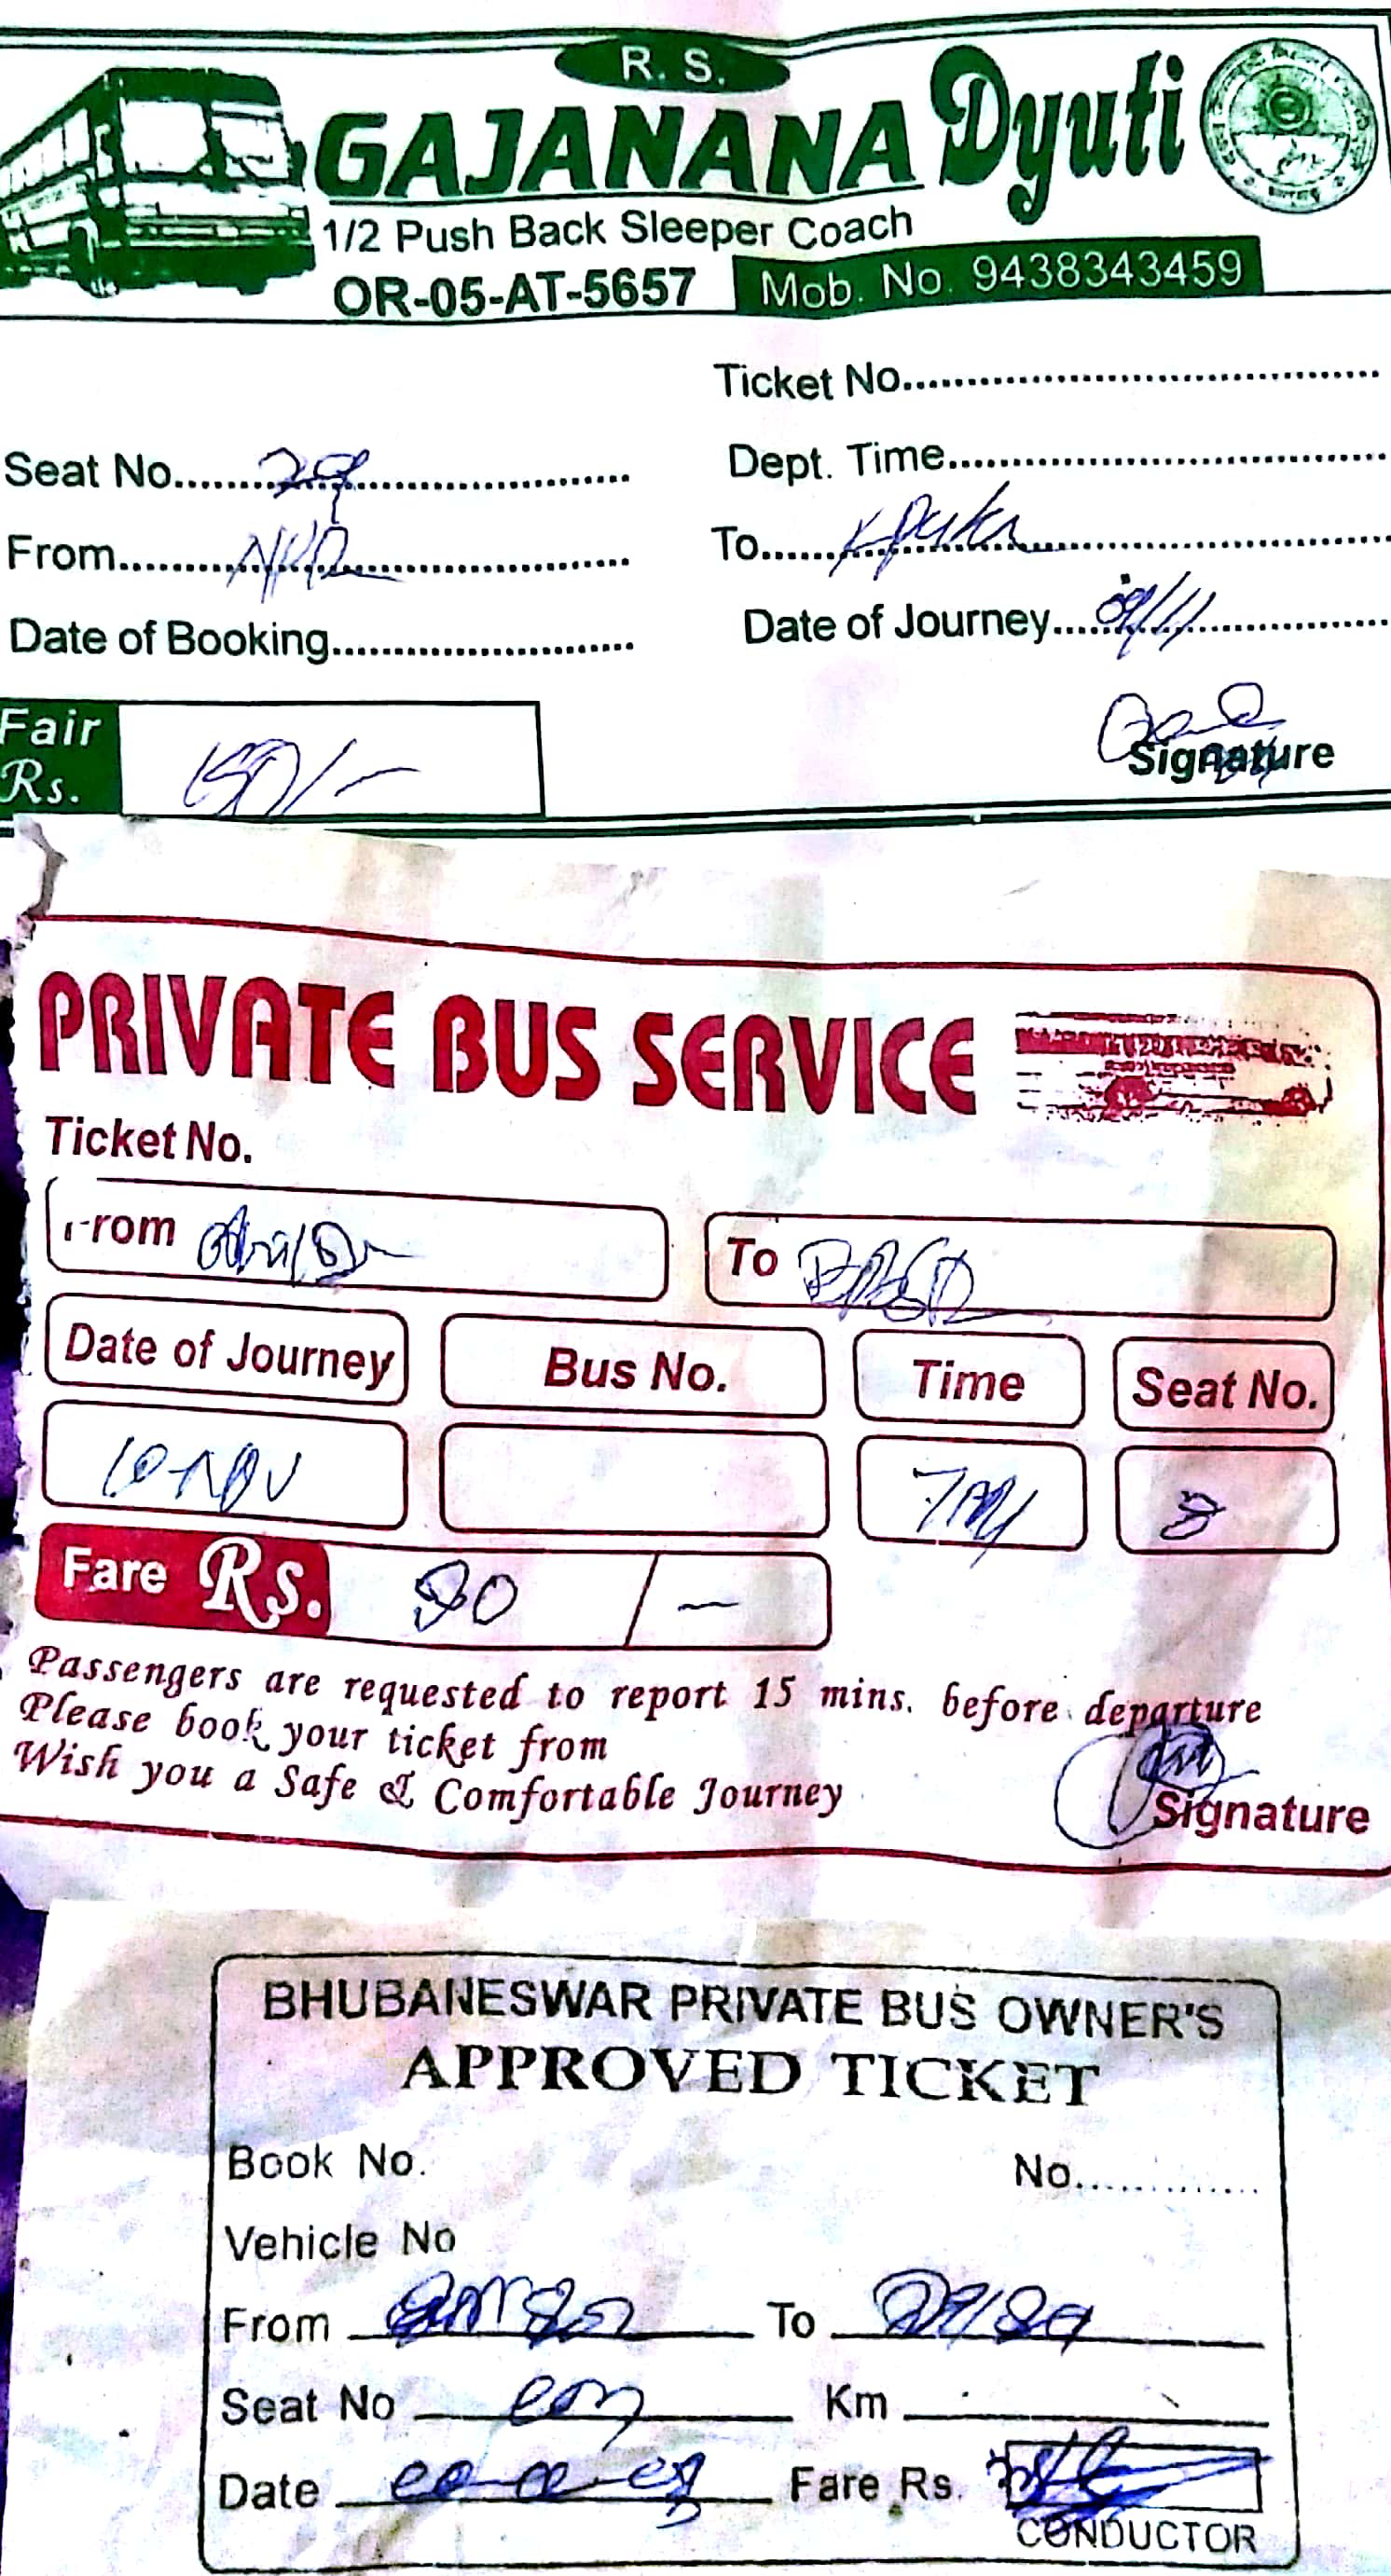 R. S.
GAJANANA Dyuti
1/2 Push Back Sleeper Coach
OR-05-AT-5657 Mob. No. 9438343459
Ticket No.
Seat No. 29 Dept. Time
From To
Date of Booking Date of Journey 09/11
Fair Rs. 150/-
Signature
PRIVATE BUS SERVICE
Ticket No.
From To BBSR
Date of Journey Bus No. Time Seat No.
10 NOV 7 PM 8
Fare Rs. 90 / -
Passengers are requested to report 15 mins. before departure
Please book your ticket from
Wish you a Safe & Comfortable Journey
Signature
BHUBANESWAR PRIVATE BUS OWNER'S
APPROVED TICKET
Book No. No.
Vehicle No
From To
Seat No Km
Date Fare Rs.
CONDUCTOR